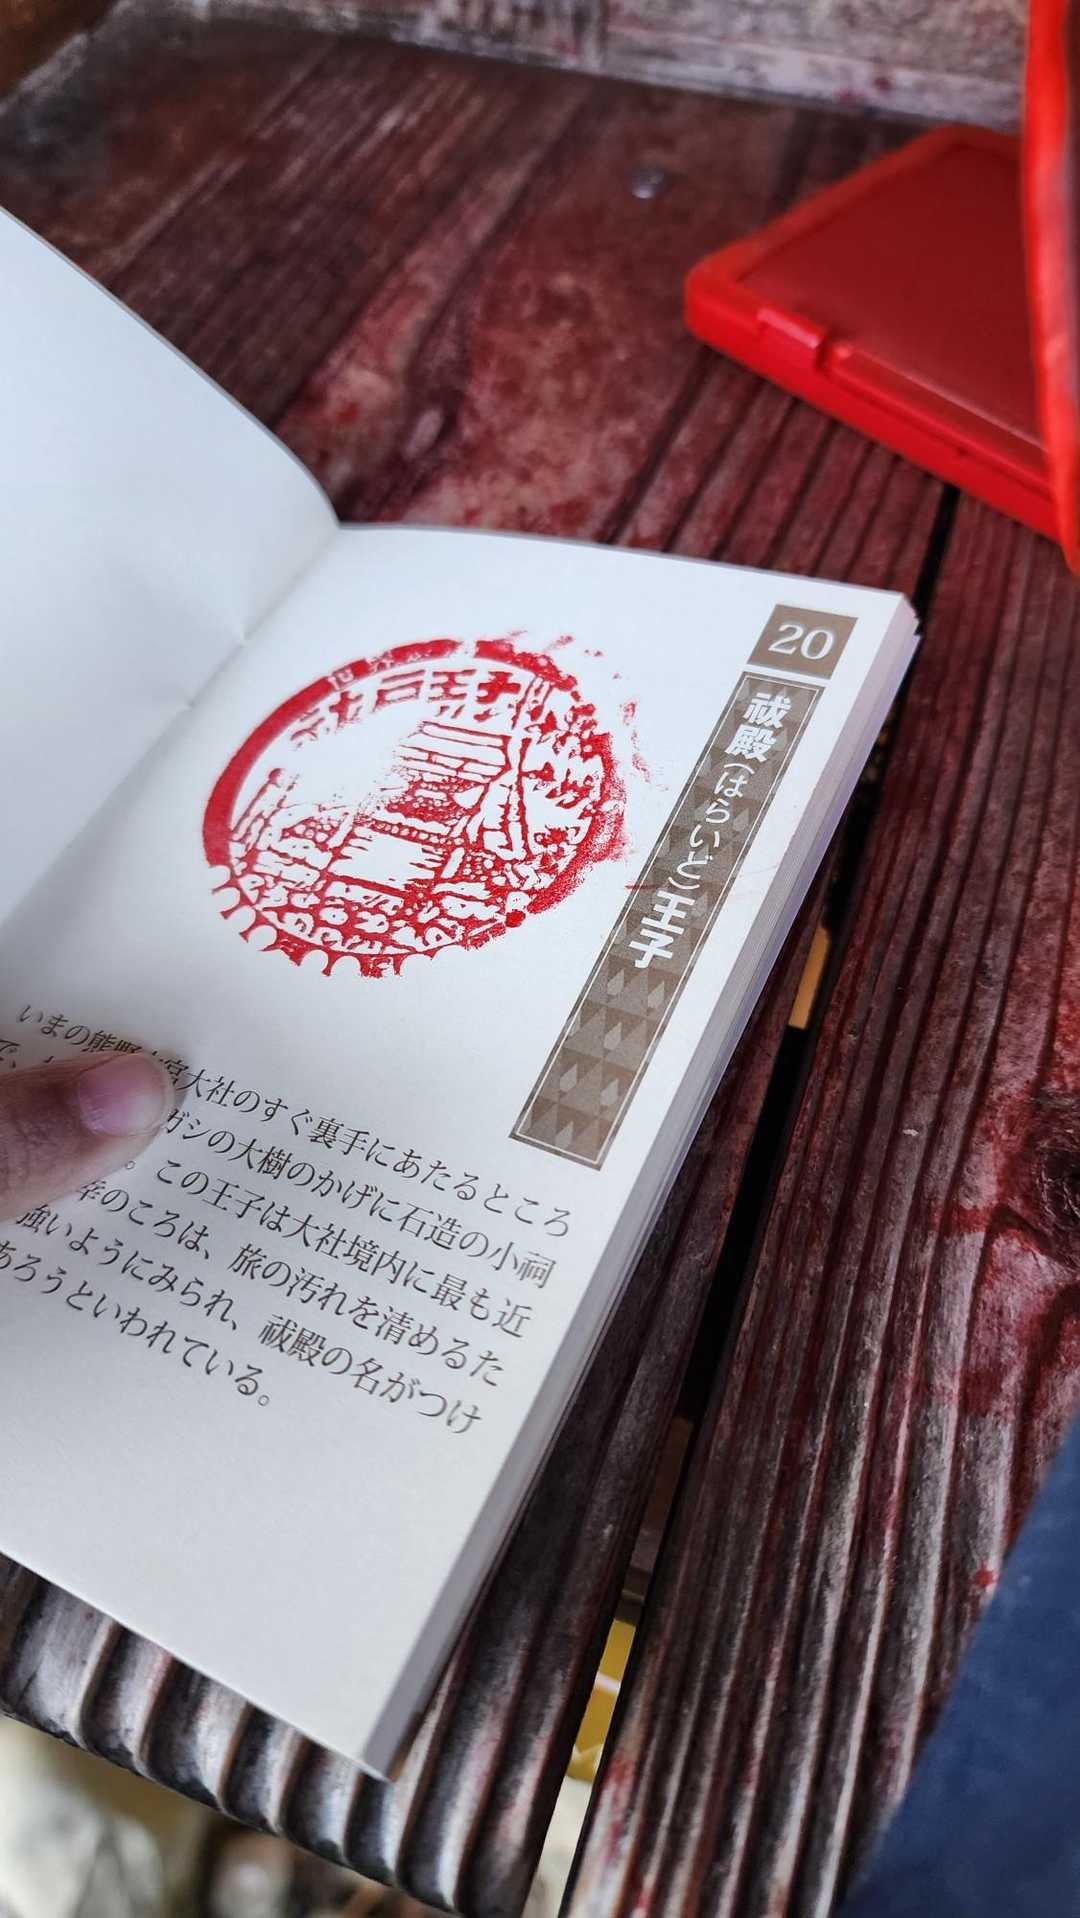 20
祓殿(はらいど)王子
いまの熊野本宮大社のすぐ裏手にあたるところ
ガシの大樹のかげに石造の小祠
。この王子は大社境内に最も近
幸のころは、旅の汚れを清めるた
強いようにみられ、祓殿の名がつけ
あろうといわれている。